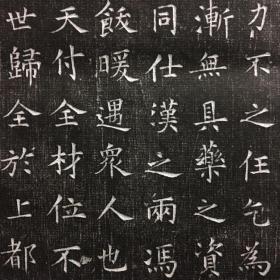 力不之任乞為
漸無具藥之資
同仕漢之兩馮
飯暖遇衆人也
天付全材位不
世歸全於上都